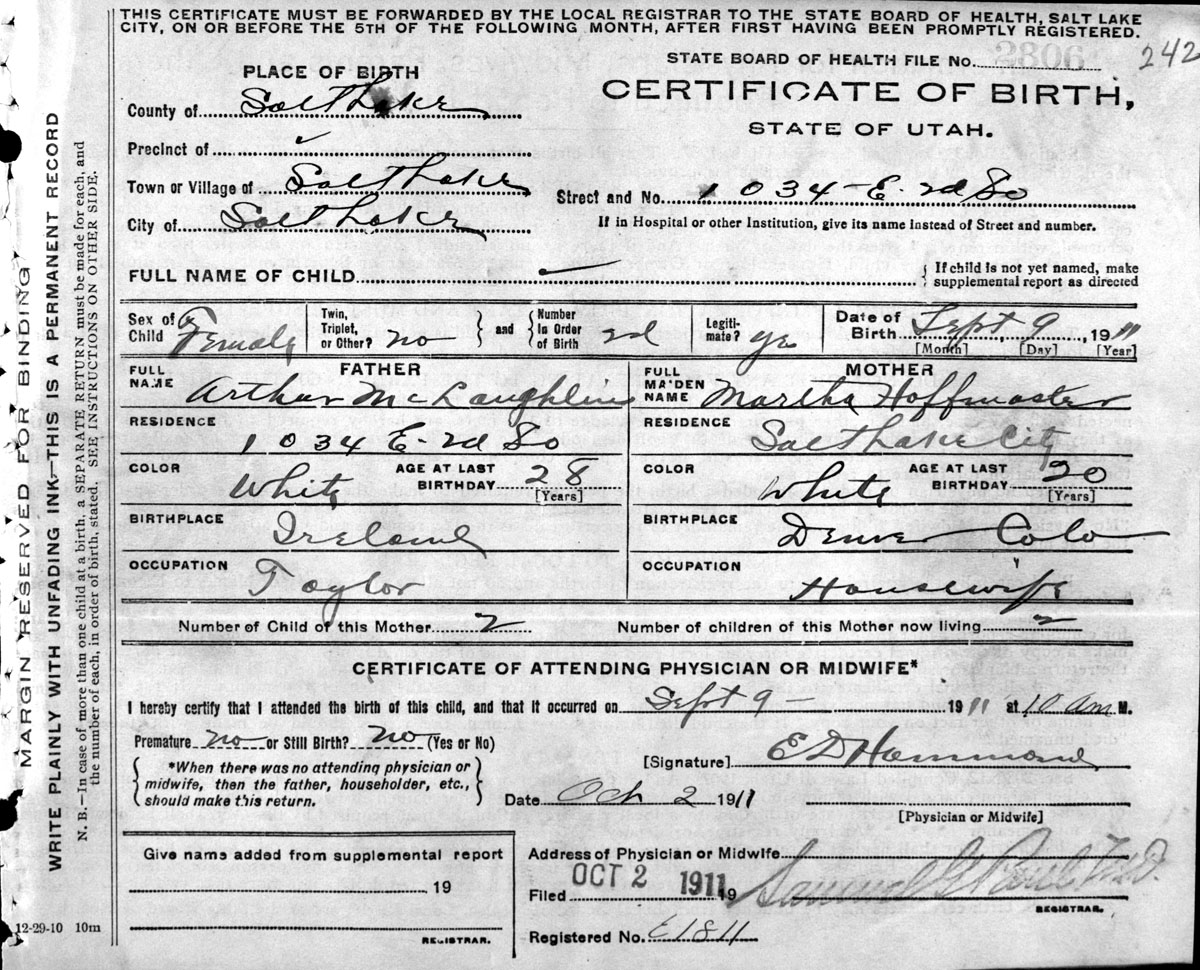 THIS CERTIFICATE MUST BE FORWARDED BY THE LOCAL REGISTRAR TO THE STATE BOARD OF HEALTH, SALT LAKE
CITY, ON OR BEFORE THE 5TH OF THE FOLLOWING MONTH, AFTER FIRST HAVING BEEN PROMPTLY REGISTERED.
242
STATE BOARD OF HEALTH FILE No. 2806
CERTIFICATE OF BIRTH,
STATE OF UTAH.
PLACE OF BIRTH
County of Salt Lake
Precinct of ✓
Town or Village of Salt Lake
Street and No. 1034-E-2d So
City of Salt Lake
If in Hospital or other Institution, give its name instead of Street and number.
FULL NAME OF CHILD ✓ { If child is not yet named, make
supplemental report as directed
Sex of Child Female Twin, Triplet, or Other? no } and { Number In Order of Birth 2d Legitimate? yes Date of Birth Sept 9, 1911
[Month] [Day] [Year]
FATHER
FULL NAME Arthur McLaughlin
RESIDENCE 1034 E-2d So
COLOR White AGE AT LAST BIRTHDAY 28
[Years]
BIRTHPLACE Ireland
OCCUPATION Taylor
MOTHER
FULL MAIDEN NAME Martha Hoffmaster
RESIDENCE Salt Lake City
COLOR White AGE AT LAST BIRTHDAY 20
[Years]
BIRTHPLACE Denver Colo
OCCUPATION Housewife
Number of Child of this Mother 2 Number of children of this Mother now living 2
CERTIFICATE OF ATTENDING PHYSICIAN OR MIDWIFE*
I hereby certify that I attended the birth of this child, and that it occurred on Sept 9 - 1911 at 10 am M.
Premature no or Still Birth? no (Yes or No)
*When there was no attending physician or
midwife, then the father, householder, etc.,
should make this return.
[Signature] E D Hammond
Date Oct 2 1911
[Physician or Midwife]
Give name added from supplemental report
19
REGISTRAR.
Address of Physician or Midwife
Filed OCT 2 1911 19 Samuel G Paul M.D.
REGISTRAR.
Registered No. E1811
12-29-10 10m
MARGIN RESERVED FOR BINDING
WRITE PLAINLY WITH UNFADING INK—THIS IS A PERMANENT RECORD
N. B.—In case of more than one child at a birth, a SEPARATE RETURN must be made for each, and
the number of each, in order of birth, stated. SEE INSTRUCTIONS ON OTHER SIDE.